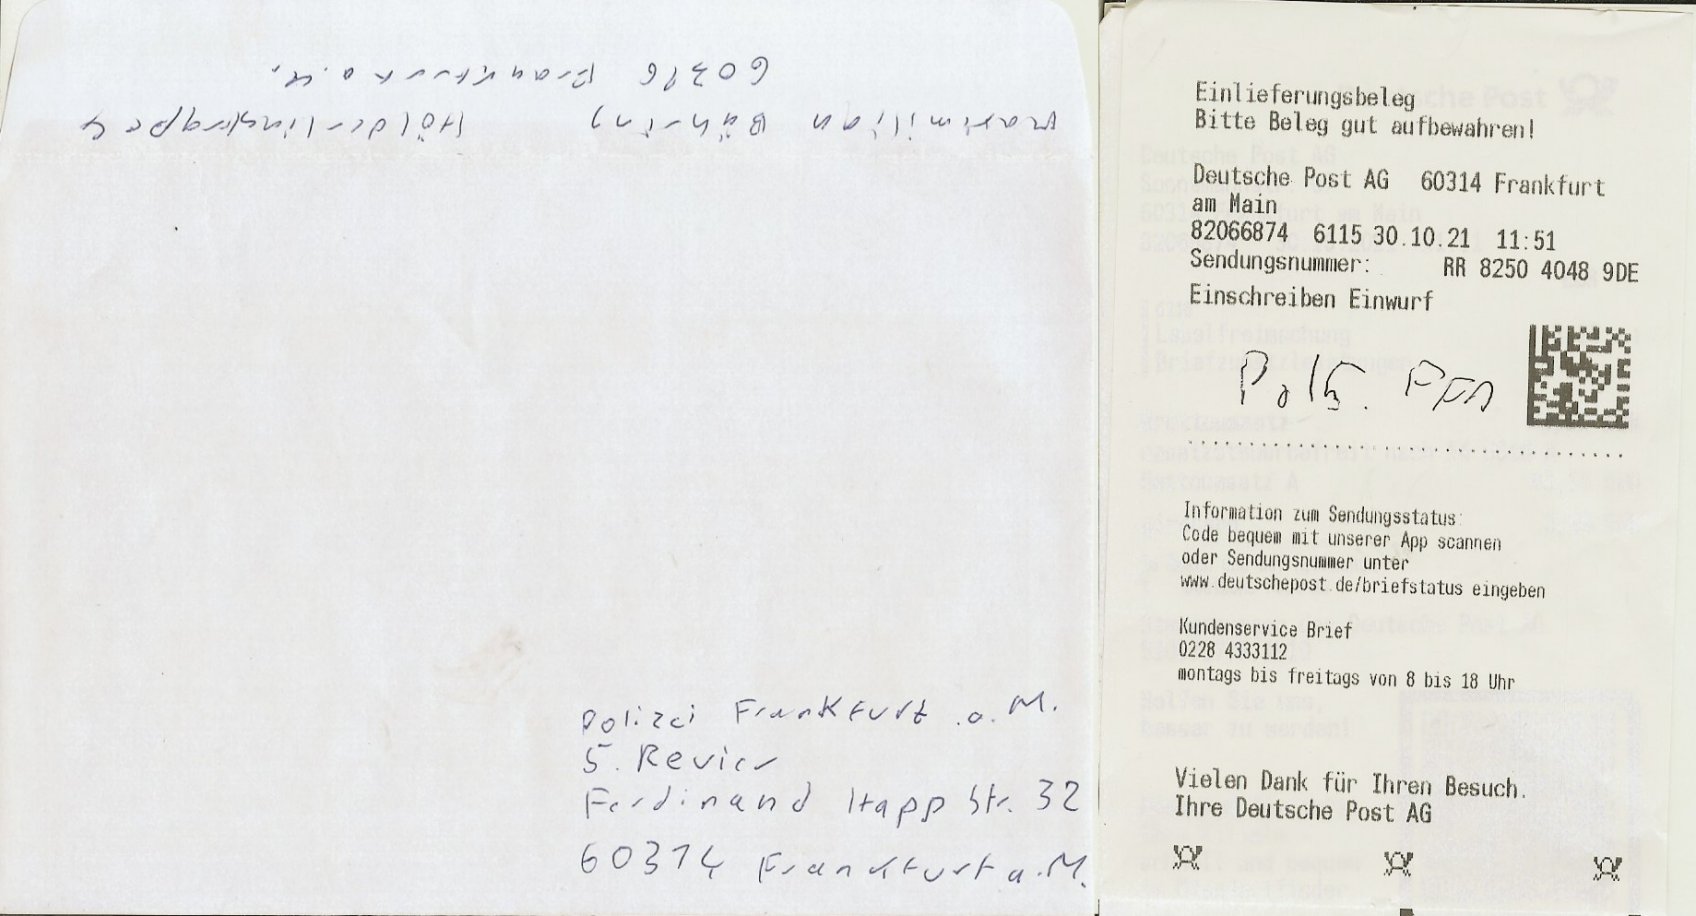 Maximilian Bähring Hölderlinstrasse 4
60316 Frankfurt a.M.
Polizei Frankfurt a.M.
5. Revier
Ferdinand Happ Str. 32
60314 Frankfurt a.M.
Einlieferungsbeleg
Bitte Beleg gut aufbewahren!
Deutsche Post AG 60314 Frankfurt
am Main
82066874 6115 30.10.21 11:51
Sendungsnummer: RR 8250 4048 9DE
Einschreiben Einwurf
Information zum Sendungsstatus:
Code bequem mit unserer App scannen
oder Sendungsnummer unter
www.deutschepost.de/briefstatus eingeben
Kundenservice Brief
0228 4333112
montags bis freitags von 8 bis 18 Uhr
Vielen Dank für Ihren Besuch.
Ihre Deutsche Post AG